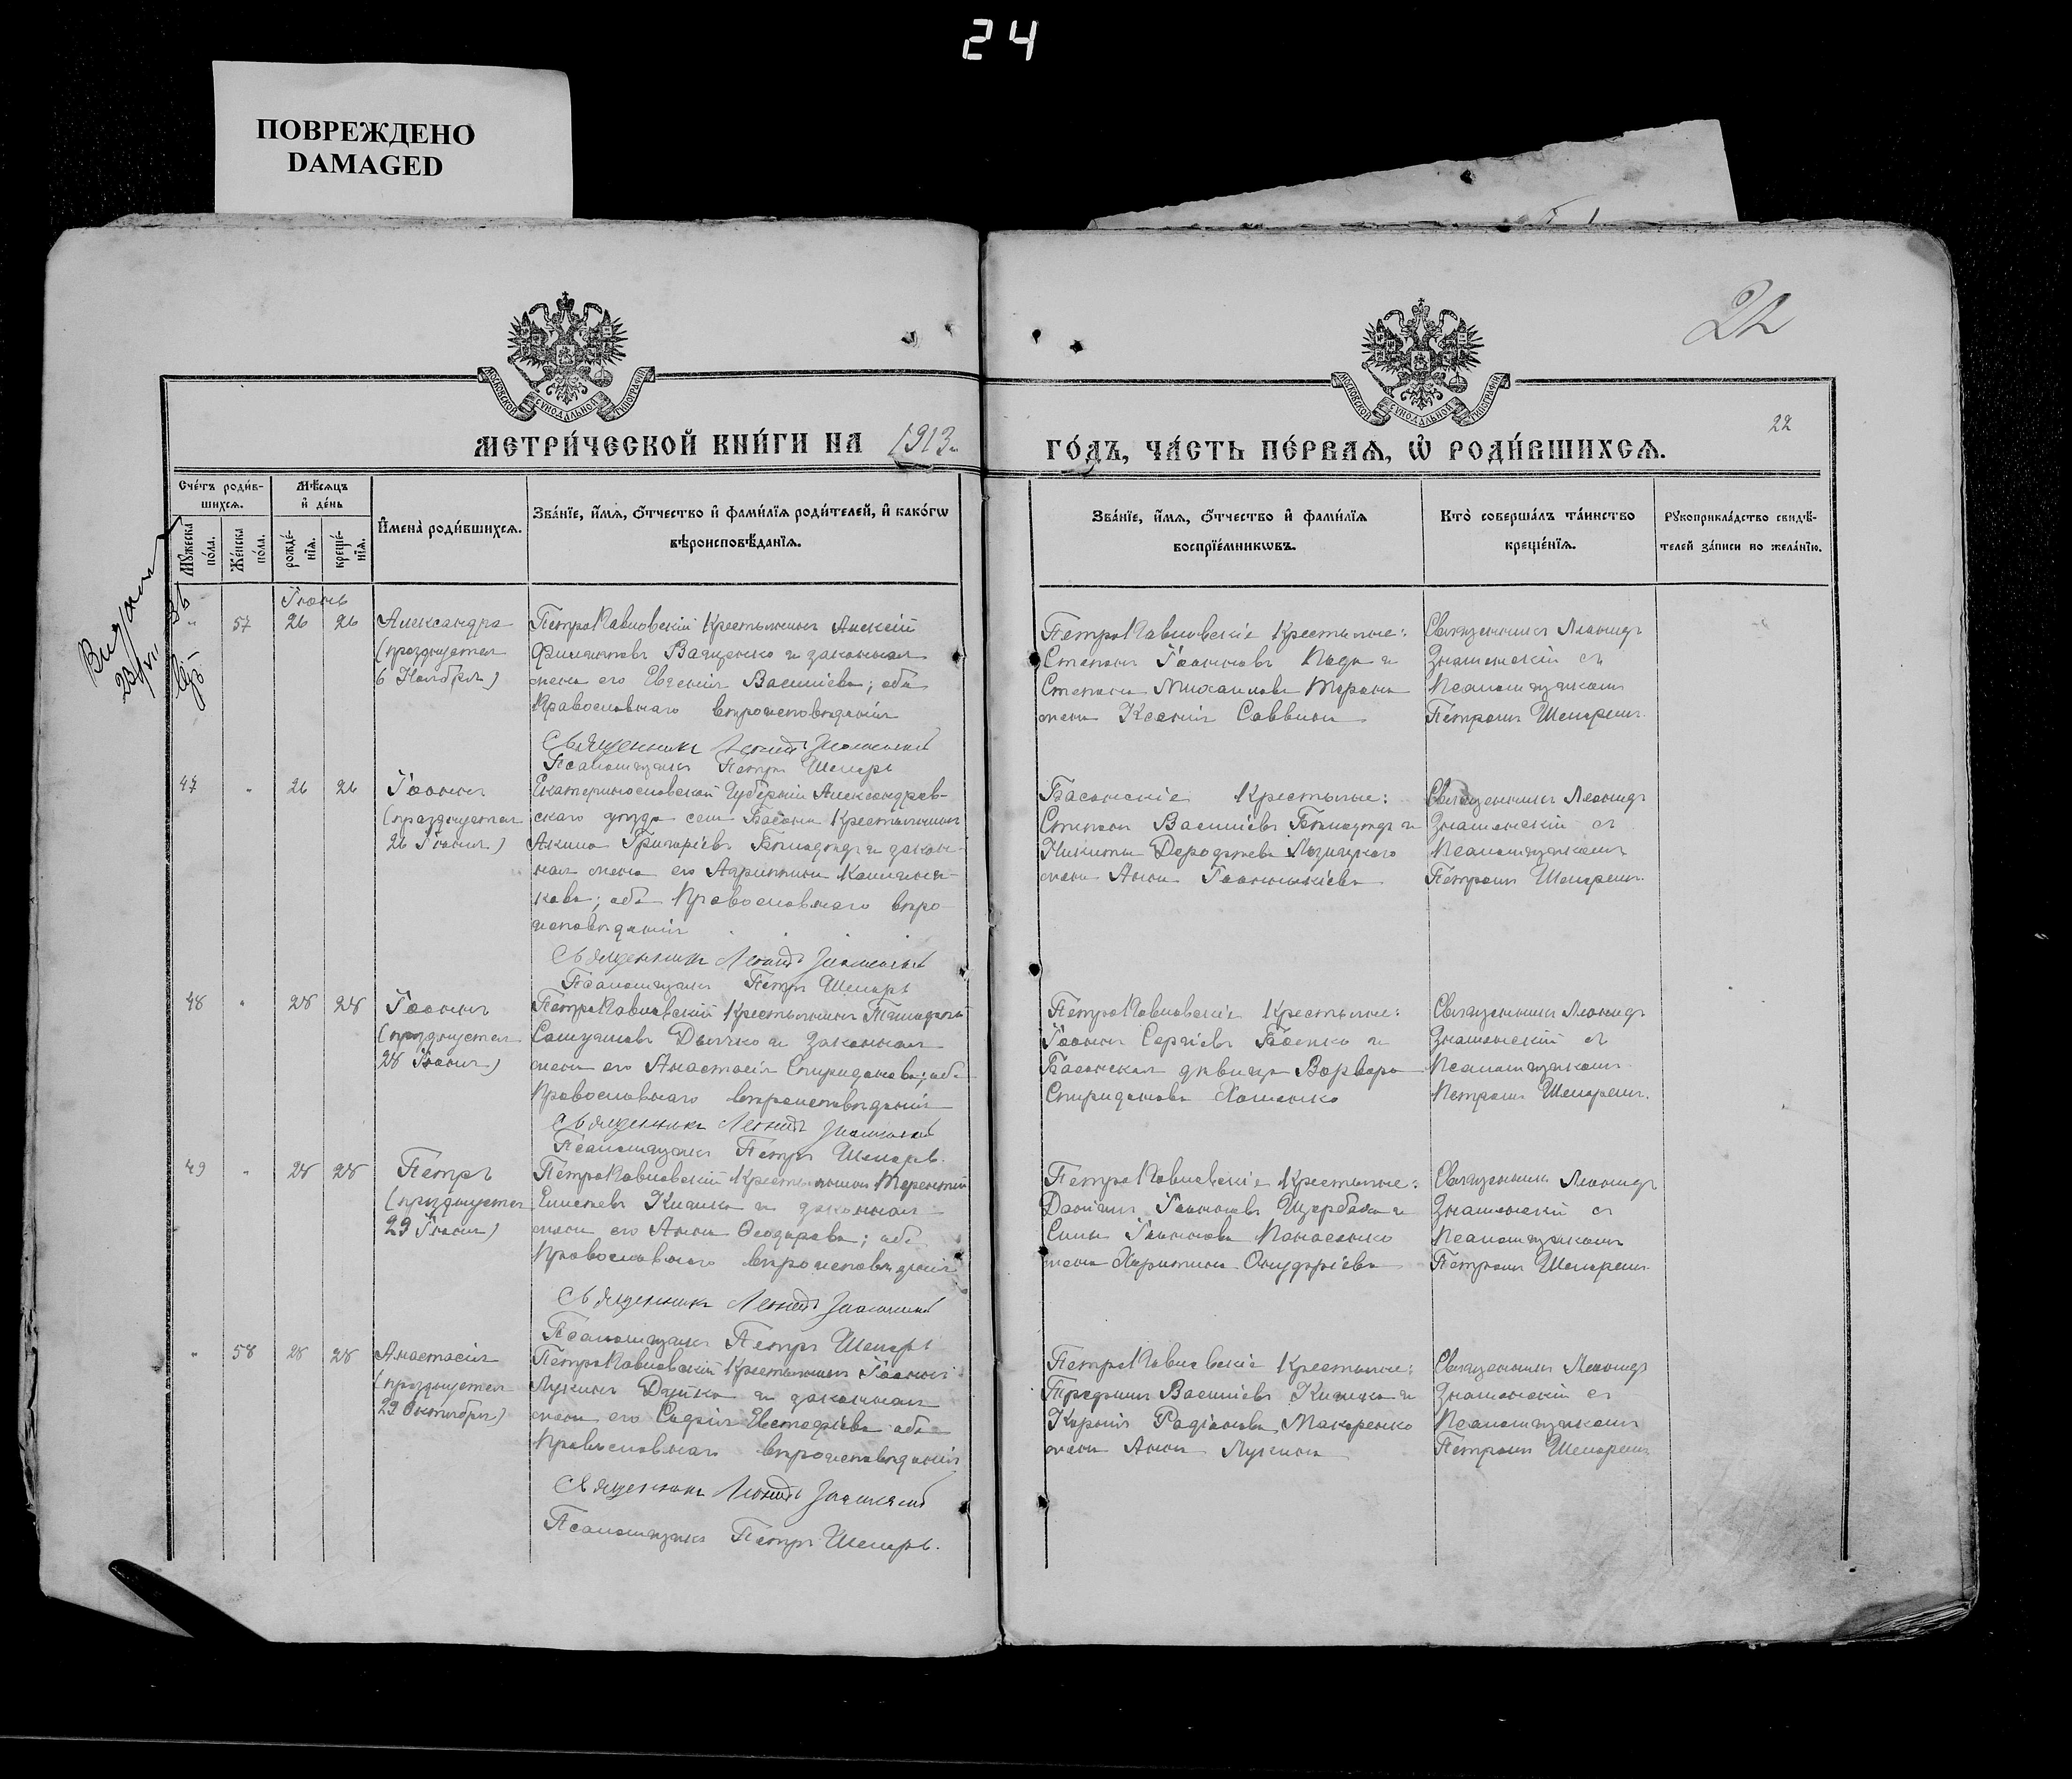 24
ПОВРЕЖДЕНО
DAMAGED
22
МОСКОВСКОЙ СѴНОДАЛЬНОЙ ТИПОГРАФІИ
МОСКОВСКОЙ СѴНОДАЛЬНОЙ ТИПОГРАФІИ
22
МЕТРИ́ЧЕСКОЙ КНИ́ГИ НА 1913 г.
ГО́ДЪ, ЧА́СТЬ ПЕ́РВАѦ, Ѡ҆ РОДИ́ВШИХСѦ.
Сче́тъ роди́в-
шихсѧ.
Мꙋ́жеска по́ла.
Же́нска по́ла.
Мѣ́сѧцъ
и҆ де́нь
рожде́-
нїѧ.
креще́-
нїѧ.
И҆мена̀ роди́вшихсѧ.
Зва́нїе, и҆́мѧ, ѻ҆́тчество и҆ фами́лїѧ роди́телей, и҆ како́гѡ
вѣроисповѣ́данїѧ.
Зва́нїе, и҆́мѧ, ѻ҆́тчество и҆ фами́лїѧ
воспрїе́мникѡвъ.
Кто̀ соверша́лъ та́инство
креще́нїѧ.
Рꙋкоприкла́дство свидѣ́-
телей за́писи по жела́нїю.
Іюнь
" 57 26 26
Александра
(празднуется
6 Ноября)
ПетроПавловскій крестьянинъ Алексій
законная
жена его Евгенія Васильева; оба
Православнаго вѣроисповѣданія
Священникъ Леонидъ Знаменскій
Псаломщикъ Петръ Шепарь
ПетроПавловскіе крестьяне:
Степанъ Іоанновъ и
Степана Михаилова
жена Ксенія Саввина
Священникъ Леонидъ
Знаменскій съ
Псаломщикомъ
Петромъ Шепаремъ.
47 " 26 26
Іоаннъ
(празднуется
26 Іюня)
Екатеринославской Губерніи Александров-
скаго уѣзда села Басани крестьянинъ
Акимъ Григоріевъ и закон-
ная жена его Агриппина
оба Православнаго вѣро-
исповѣданія
Священникъ Леонидъ Знаменскій
Псаломщикъ Петръ Шепарь
Басанскіе крестьяне:
Степанъ Васильевъ и
Никиты
жена Анна
Священникъ Леонидъ
Знаменскій съ
Псаломщикомъ
Петромъ Шепаремъ.
48 " 28 28
Іоаннъ
(празднуется
28 Іюня)
ПетроПавловскій крестьянинъ
и законная
жена его Анастасія Спиридонова; оба
Православнаго вѣроисповѣданія
Священникъ Леонидъ Знаменскій
Псаломщикъ Петръ Шепарь.
ПетроПавловскіе крестьяне:
Іоаннъ Сергіевъ и
Басанская дѣвица Варвара
Спиридонова Хоменко
Священникъ Леонидъ
Знаменскій съ
Псаломщикомъ
Петромъ Шепаремъ.
49 " 28 28
Петръ
(празднуется
29 Іюня)
ПетроПавловскій крестьянинъ Терентій
и законная
жена его Анна Ѳеодорова; оба
Православнаго вѣроисповѣданія
Священникъ Леонидъ Знаменскій
Псаломщикъ Петръ Шепарь
ПетроПавловскіе крестьяне:
Даніилъ Іоанновъ Щербакъ и
Іоаннова Панасенко
жена Харитина Онуфріева
Священникъ Леонидъ
Знаменскій съ
Псаломщикомъ
Петромъ Шепаремъ.
" 58 28 28
Анастасія
(празднуется
29 Октября)
ПетроПавловскій крестьянинъ Іоаннъ
Лукинъ и законная
жена его Софія Евстафіева оба
Православнаго вѣроисповѣданія
Священникъ Леонидъ Знаменскій
Псаломщикъ Петръ Шепарь.
ПетроПавловскіе крестьяне:
Васильевъ и
Радіонова Макаренко
жена Анна Лукина
Священникъ Леонидъ
Знаменскій съ
Псаломщикомъ
Петромъ Шепаремъ